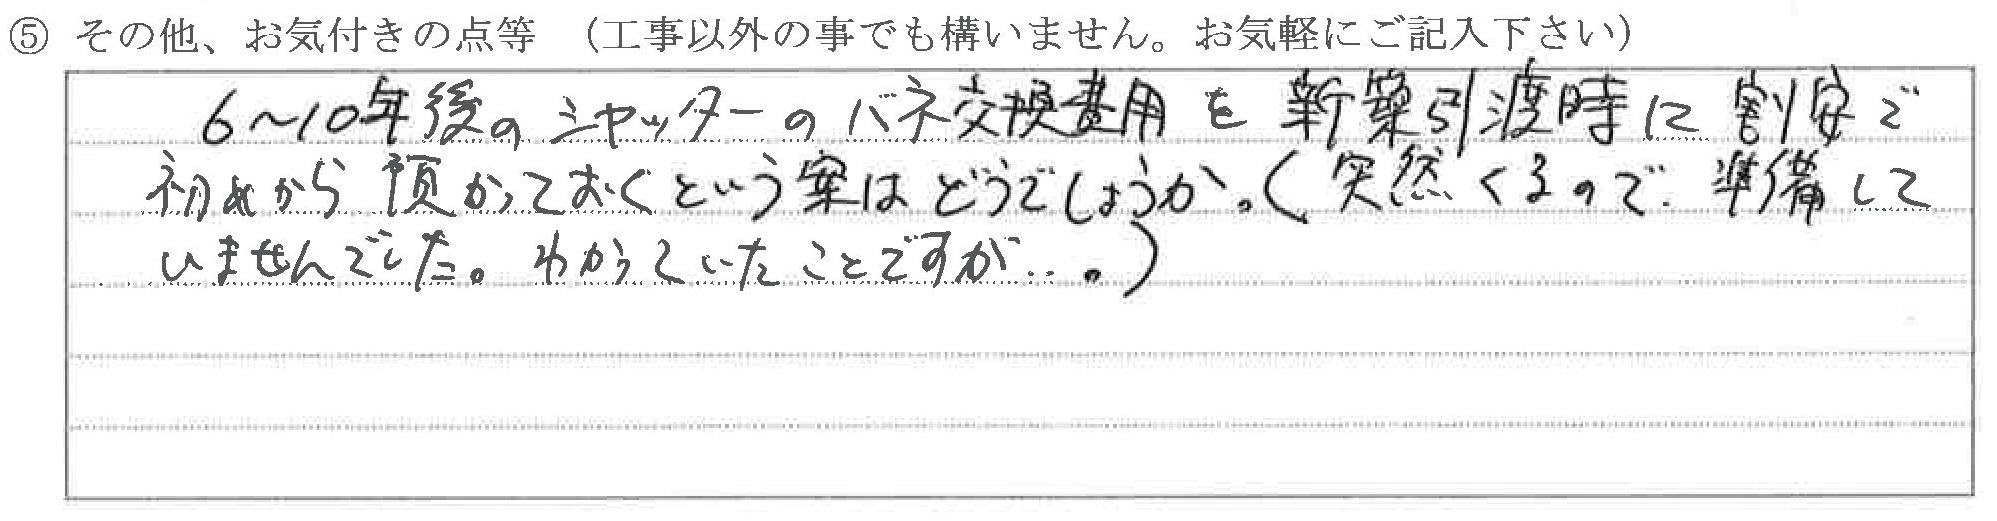 ⑤ その他、お気付きの点等 （工事以外の事でも構いません。お気軽にご記入下さい）
6～10年後のシャッターのバネ交換費用を新築引渡時に割安で
初めから預かっておくという案はどうでしょうか。（突然くるので準備して
いませんでした。わかっていたことですが…。）